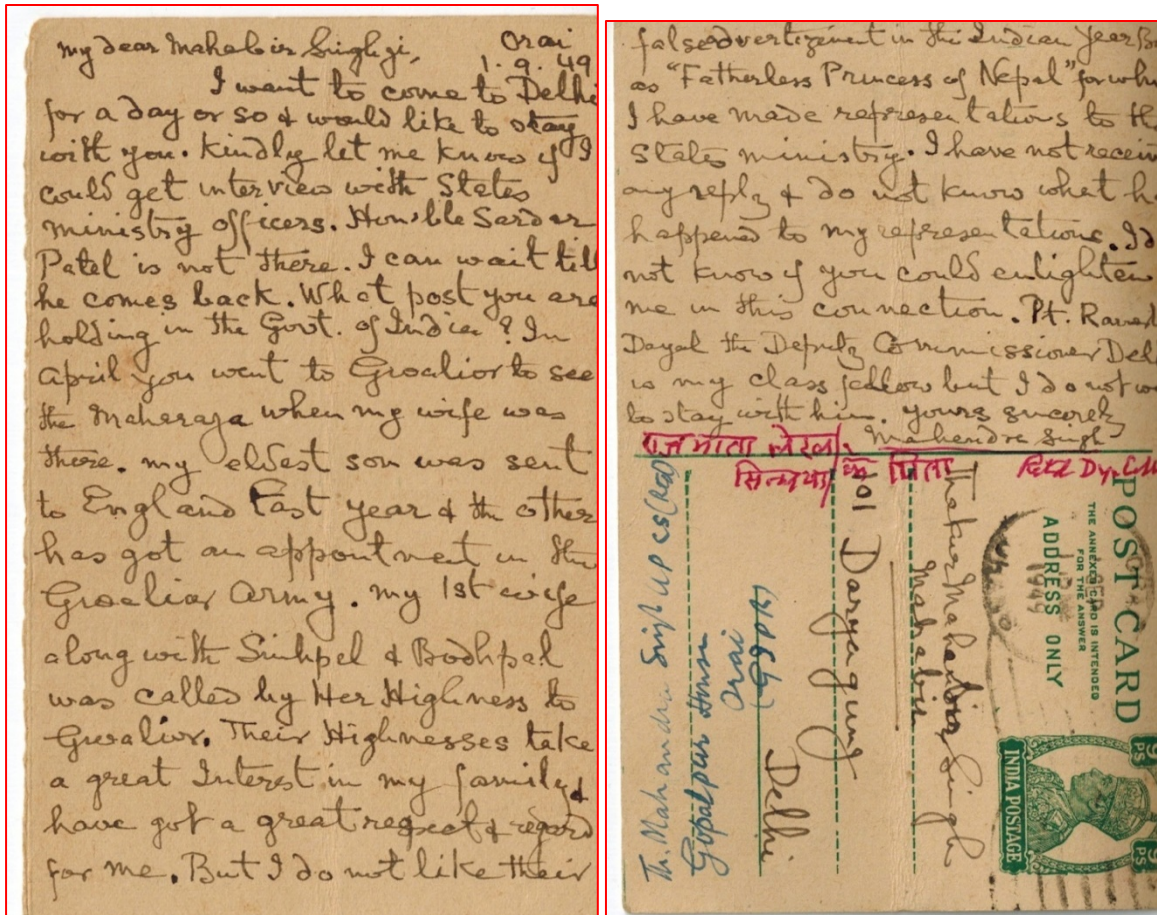 my dear Mahabir Singhji,
Orai
1. 9. 49
I want to come to Delhi
for a day or so & would like to stay
with you. Kindly let me know if I
could get interview with States
ministry officers. Hon'ble Sardar
Patel is not there. I can wait till
he comes back. What post you are
holding in the Govt. of India? In
April you went to Gwalior to see
the Maharaja when my wife was
there. my eldest son was sent
to England Last year & the other
has got an appointment in the
Gwalior Army. my 1st wife
along with & Bodhpal
was called by Her Highness to
Gwalior. Their Highnesses take
a great Interest in my family &
have got a great respect & regard
for me. But I do not like their
false advertizement in the Indian Year B
as "Fatherless Princess of Nepal" for wh
I have made representations to th
States ministry. I have not receiv
any reply & do not know what ha
happened to my representations. I d
not know if you could enlighten
me in this connection. Pt.
Dayal the Deputy Commissioner Del
is my class fellow but I do not w
to stay with him. yours sincerely
Mahendra Singh
राजमाता लेखा
सिन्धिया के पिता
Retd Dy. C
POST CARD
THE ANNEXED CARD IS INTENDED
FOR THE ANSWER
ADDRESS ONLY
1949
9 PS
9 PS
INDIA POSTAGE
Thakur Mahabir Singh
Mahabir
101 Daryagung
Delhi
Th. Mahendra Singh UPCS (Retd)
Gopalpur House
Orai